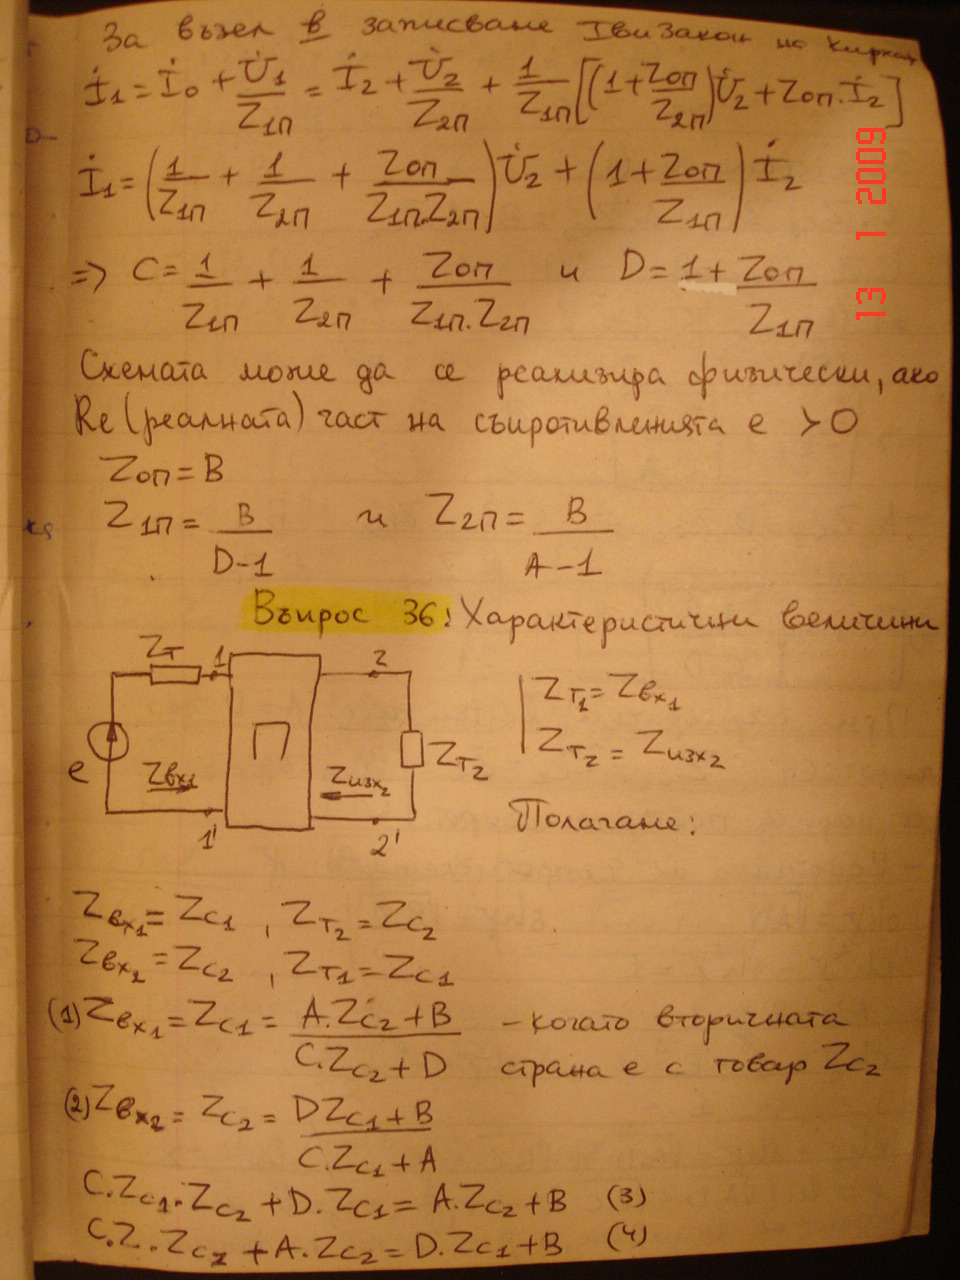 За възел в записване I-ви закон на Кирхоф
İ₁ = İ₀ + U̇₁/Z₁п = İ₂ + U̇₂/Z₂п + 1/Z₁п [(1 + Zоп/Z₂п) U̇₂ + Zоп . İ₂]
İ₁ = (1/Z₁п + 1/Z₂п + Zоп/Z₁п.Z₂п) U̇₂ + (1 + Zоп/Z₁п) İ₂
=> C = 1/Z₁п + 1/Z₂п + Zоп/Z₁п.Z₂п и D = 1 + Zоп/Z₁п
Схемата може да се реализира физически, ако
Re (реалната) част на съпротивленията е > 0
Zоп = B
Z₁п = B/D-1 и Z₂п = B/A-1
Въпрос 36: Характеристични величини
Zт 1 2
Zт₁ = Zвх₁
Zт₂ = Zизх₂
e Zвх₁ П Zизх₂ Zт₂
1' 2'
Полагане:
Zвх₁ = Zc₁ , Zт₂ = Zc₂
Zвх₂ = Zc₂ , Zт₁ = Zc₁
(1) Zвх₁ = Zc₁ = A.Zc₂ + B/C.Zc₂ + D - когато вторичната
страна е с товар Zc₂
(2) Zвх₂ = Zc₂ = DZc₁ + B/C.Zc₁ + A
C.Zc₁.Zc₂ + D.Zc₁ = A.Zc₂ + B (3)
C.Z..Zc₂ + A.Zc₂ = D.Zc₁ + B (4)
13 1 2009